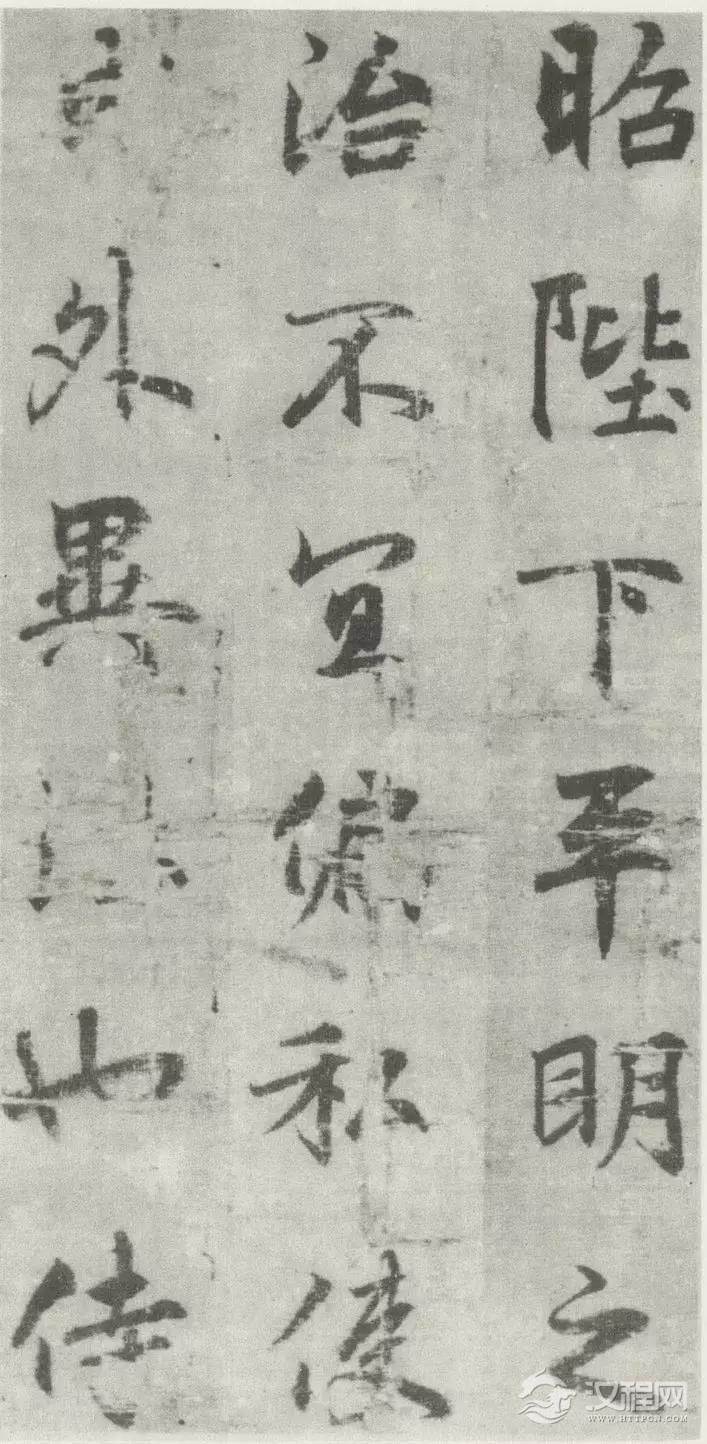 昭陛下平明之
治不宜偏私使
外異也侍
汉程网
WWW.HTTPCN.COM